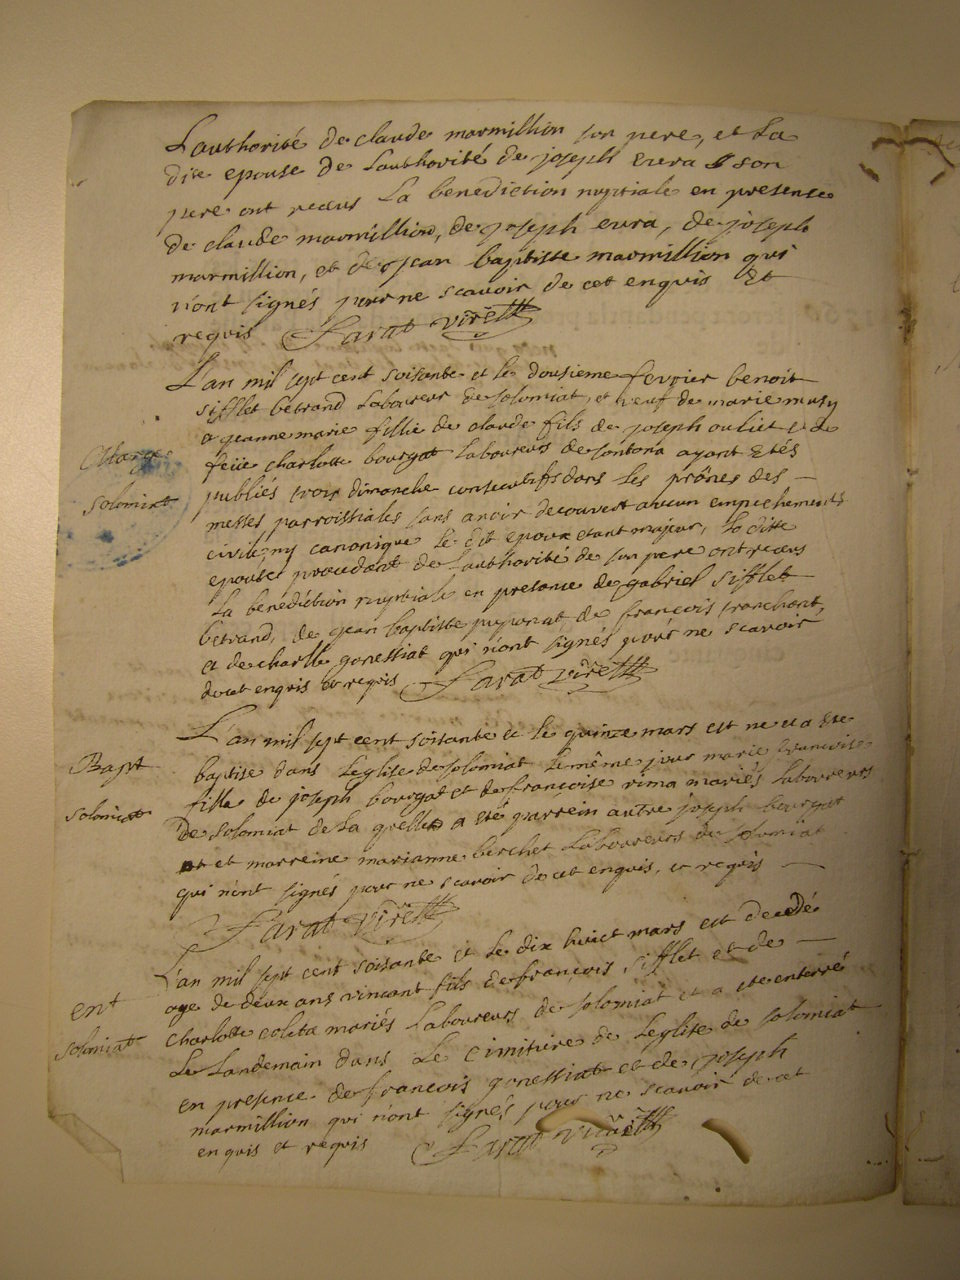 L'authorité de claude marmillion son pere, et La
dite epouse de Lauthorité de joseph evra son
pere ont receus La benediction nuptiale en presense
de claude marmillion, de joseph evra, de joseph
marmillion, et de jean baptiste marmillion qui
n'ont signés pour ne scavoir de cet enquis Et
requis Farat vire
L'an mil sept cent soisante et le dousieme fevrier benoit
sifflet betrand Laboureur de solomiat, et veuf de marie musy
a jeanne marie fillie de claude fils de joseph ouliet et de
feüe charlotte bourgat Laboureurs de ayant Etés
publiés trois dimanche consecutifs dans Les prônes des
messes parroissiales sans avoir decouvert aucun empechements
civile ny canonique Le dit epoux etant majeur, La ditte
epouse procedant de Lauthorité de son pere ont receus
La benediction nuptiale en presance de gabriel sifflet
betrand, de jean baptiste de francois tranchant,
et de charle gonessiat qui n'ont signés pour ne scavoir
de cet enquis et requis Farat vire
Mariage
solomiat
L'an mil sept cent soisante et le quinze mars est ne et a Ete
baptise dans Léglise de solomiat Le même jour marie francoise
fille de joseph bourgat et de francoise rima mariés Laboureurs
De solomiat de La quelle a Eté parrein autre joseph bourgat
et marreine marianne berchet Laboureurs de solomiat
qui n'ont signés pour ne scavoir de cet enquis, et requis
Farat vire
Bapt
solomiat
L'an mil sept cent soisante et Le dix huict mars est decedé
age de deux ans vincent fils de francois sifflet et de
charlotte coleta mariés Laboureurs de solomiat et a ete enterré
Le Landemain dans Le Cimitiere de Leglise de solomiat
en presence de francois gonessiat et de joseph
marmillion qui n'ont signés pour ne scavoir de cet
enquis et requis Farat vire
ent
solomiat